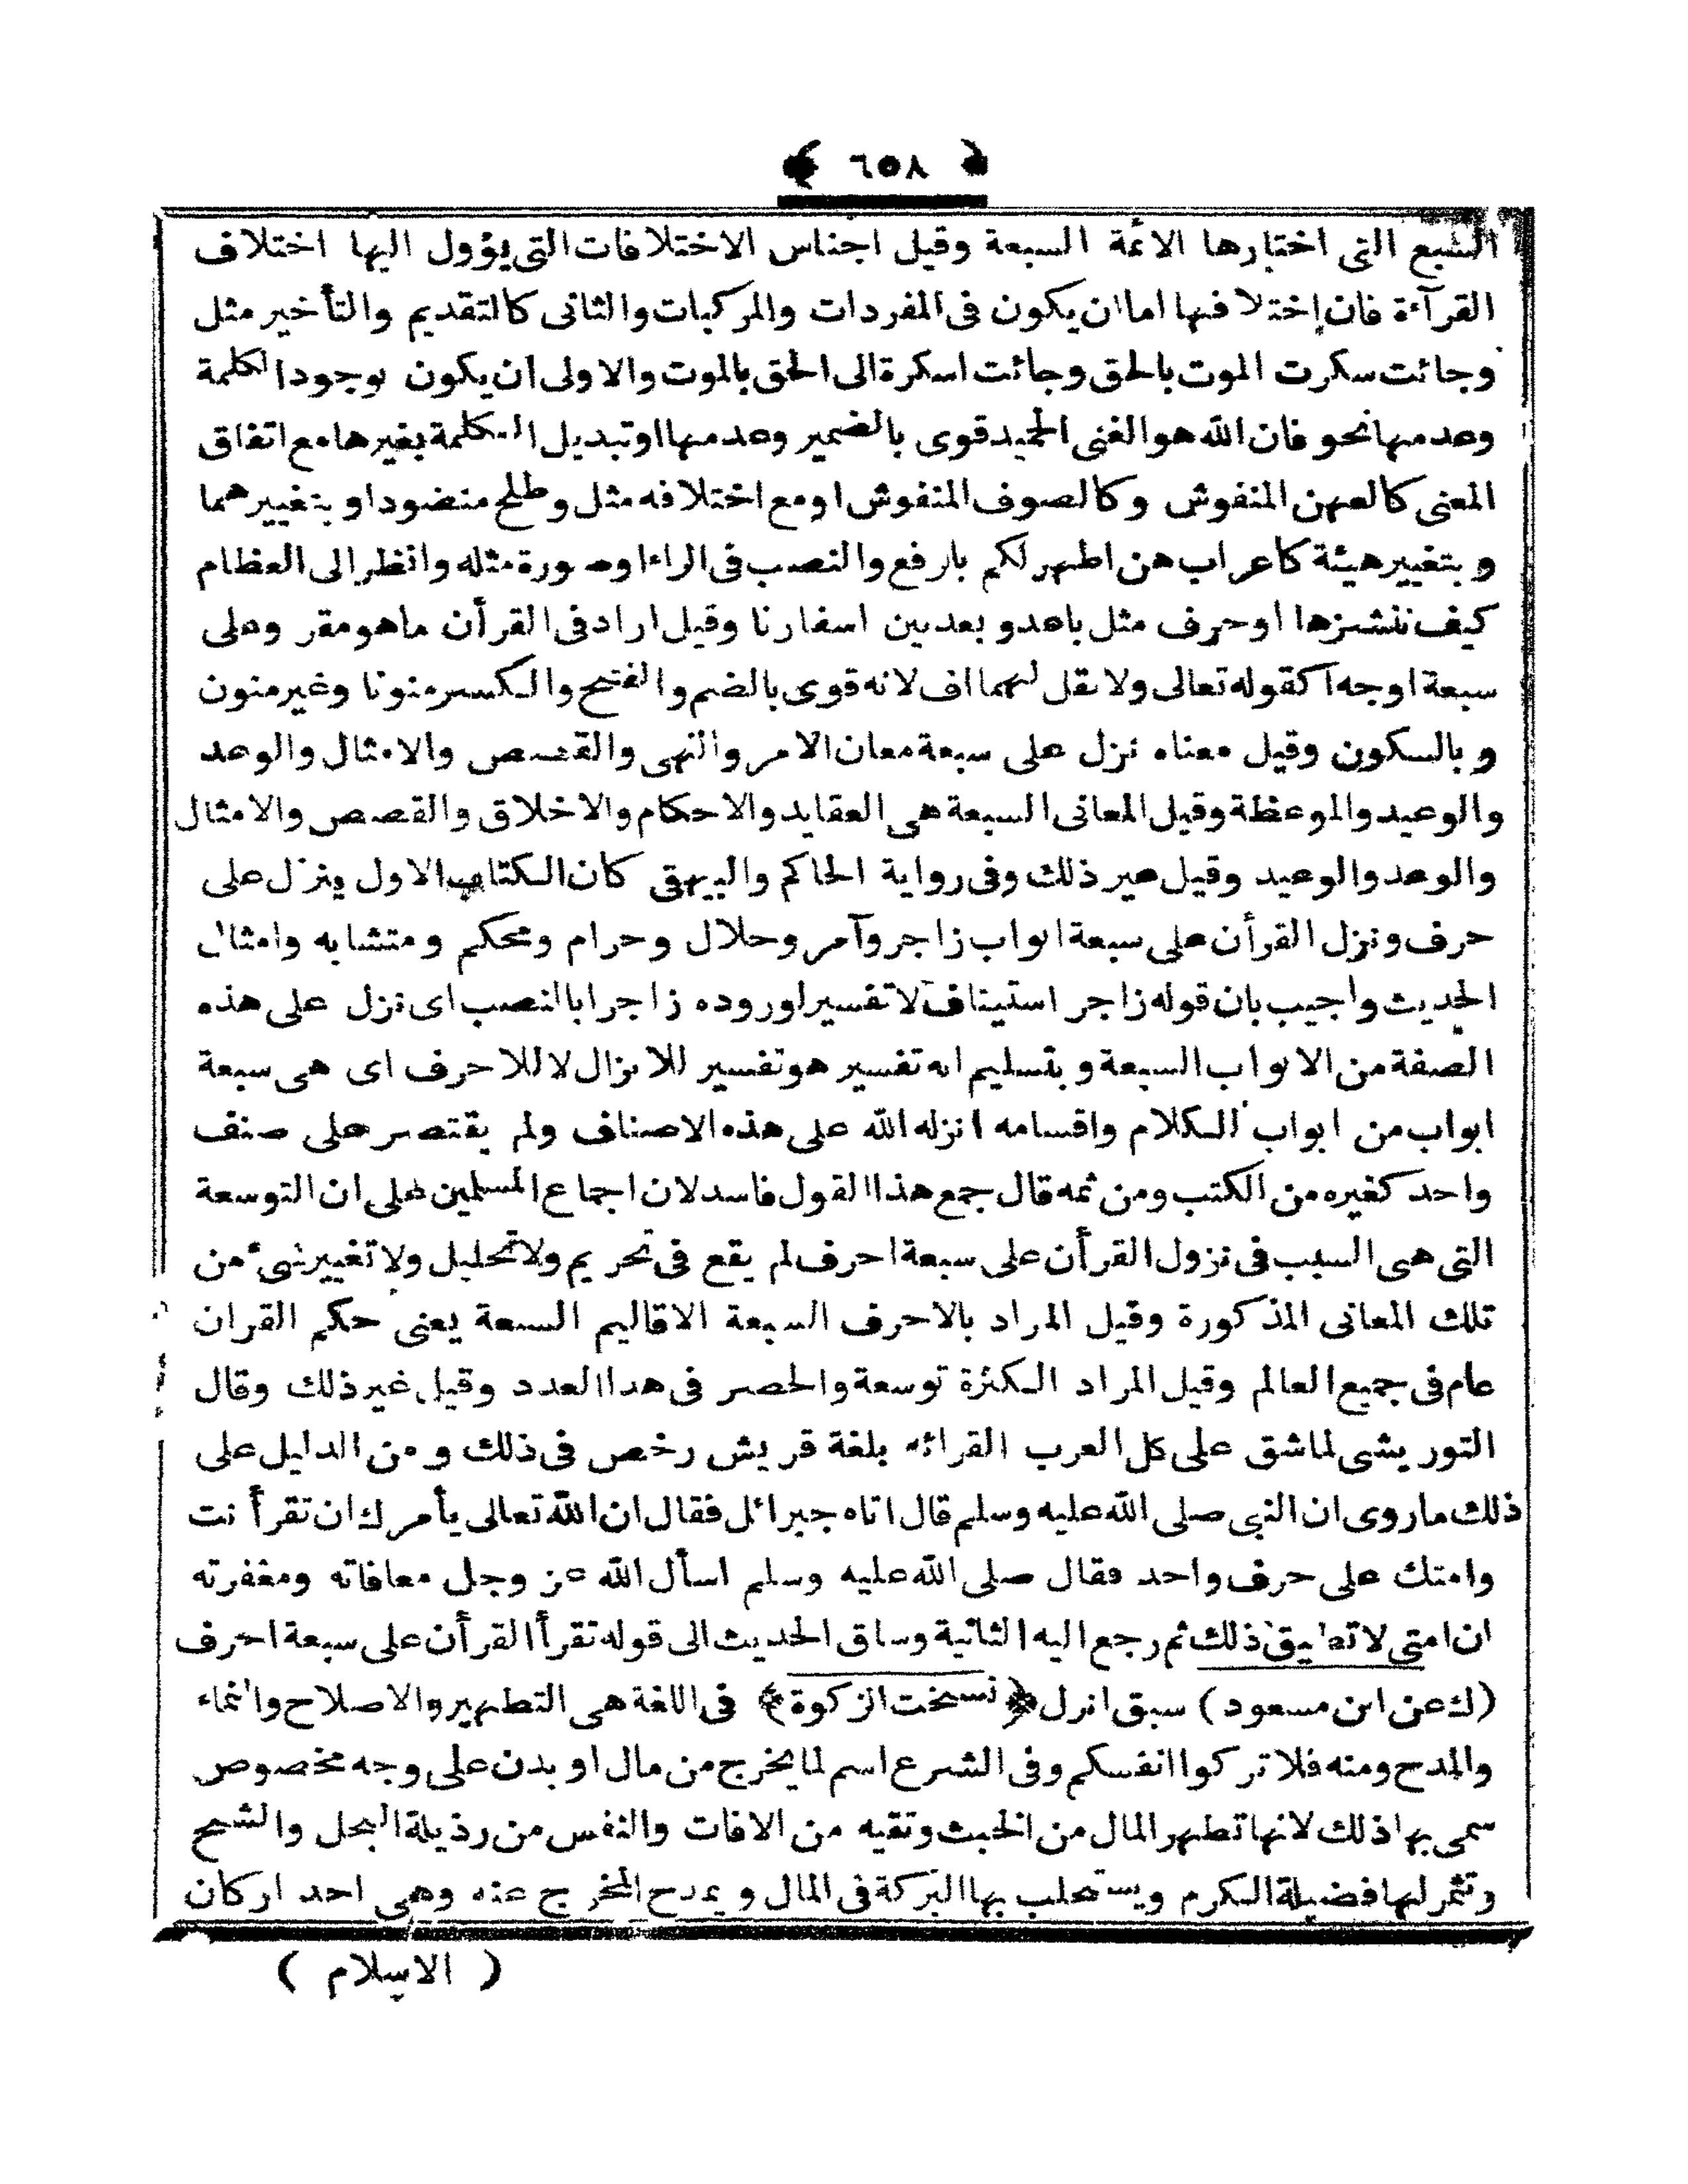 ﴿ ٦٥٨ ﴾
السبع التى اختارها الائمة السبعة وقيل اجناس الاختلافات التى يؤول اليها اختلاف
القرآءة فان إختلا فها اما ان يكون فى المفردات والمركبات والثانى كالتقديم والتأخير مثل
وجائت سكرت الموت بالحق وجائت اسكرة الى الحق بالموت والاولى ان يكون بوجود الكلمة
وعدمها نحو فان الله هو الغنى الحميد قوى بالضمير وعدمها او تبديل الكلمة بغيرها مع اتفاق
المعنى كالعهن المنفوش وكالصوف المنفوش او مع اختلافه مثل وطلح منضود او بتغييرهما
و بتغيير هيئة كاعراب هن اطهر لكم بارفع والنصب فى الراء او صورة مثله وانظر الى العظام
كيف ننشزها او حرف مثل باعد و بعد بين اسفارنا وقيل اراد فى القرأن ماهو مقر وعلى
سبعة اوجه آكقوله تعالى ولا تقل لهما اف لانه قوى بالضم والفتح والكسر منونا وغير منون
و بالسكون وقيل معناه نزل على سبعة معان الامر والنهى والقصص والامثال والوعد
والوعيد والموعظة وقيل المعانى السبعة هى العقايد والاحكام والاخلاق والقصص والامثال
والوعد والوعيد وقيل صير ذلك وفى رواية الحاكم والبيهقى كان الكتاب الاول ينزل على
حرف ونزل القرأن على سبعة ابواب زاجر وآمر وحلال وحرام ومحكم ومتشابه وامثال
الحديث واجيب بان قوله زاجر استيناف لاتفسير اوروده زاجرا بالنصب اى نزل على هذه
الصفة من الابواب السبعة و بتسليم انه تفسير هو تفسير للانزال لا للاحرف اى هى سبعة
ابواب من ابواب الكلام واقسامه انزله الله على هذه الاصناف ولم يقتصر على صنف
واحد كغيره من الكتب ومن ثمه قال جمع هذا القول فاسد لان اجماع المسلمين على ان التوسعة
التى هى السبب فى نزول القرأن على سبعة احرف لم يقع فى تحريم ولاتحليل ولا تغيير شىء من
تلك المعانى المذكورة وقيل المراد بالاحرف السبعة الاقاليم السبعة يعنى حكم القران
عام فى جميع العالم وقيل المراد الكثرة توسعة والحصر فى هذا العدد وقيل غير ذلك وقال
التور يشى لما شق على كل العرب القرائه بلغة قريش رخص فى ذلك ومن الدليل على
ذلك ماروى ان النبى صلى الله عليه وسلم قال اتاه جبرائل فقال ان الله تعالى يأمرك ان تقرأ نت
وامتك على حرف واحد فقال صلى الله عليه وسلم اسأل الله عز وجل معافاته ومغفرته
ان امتى لاتطيق ذلك ثم رجع اليه الثانية وساق الحديث الى قوله تقرأ القرأن على سبعة احرف
(ك عن ابن مسعود) سبق انزل ﴿نسخت الزكوة﴾ فى اللغة هى التطهير والاصلاح والنماء
والمدح ومنه فلا تزكوا انفسكم وفى الشرع اسم لما يخرج من مال او بدن على وجه مخصوص
سمى بها ذلك لانها تطهر المال من الخبث وتقيه من الافات والنفس من رذيلة البخل والشح
وتثمر لها فضيلة الكرم ويستجلب بها البركة فى المال و يمدح المخرج عنه وهى احد اركان
( الاسلام )